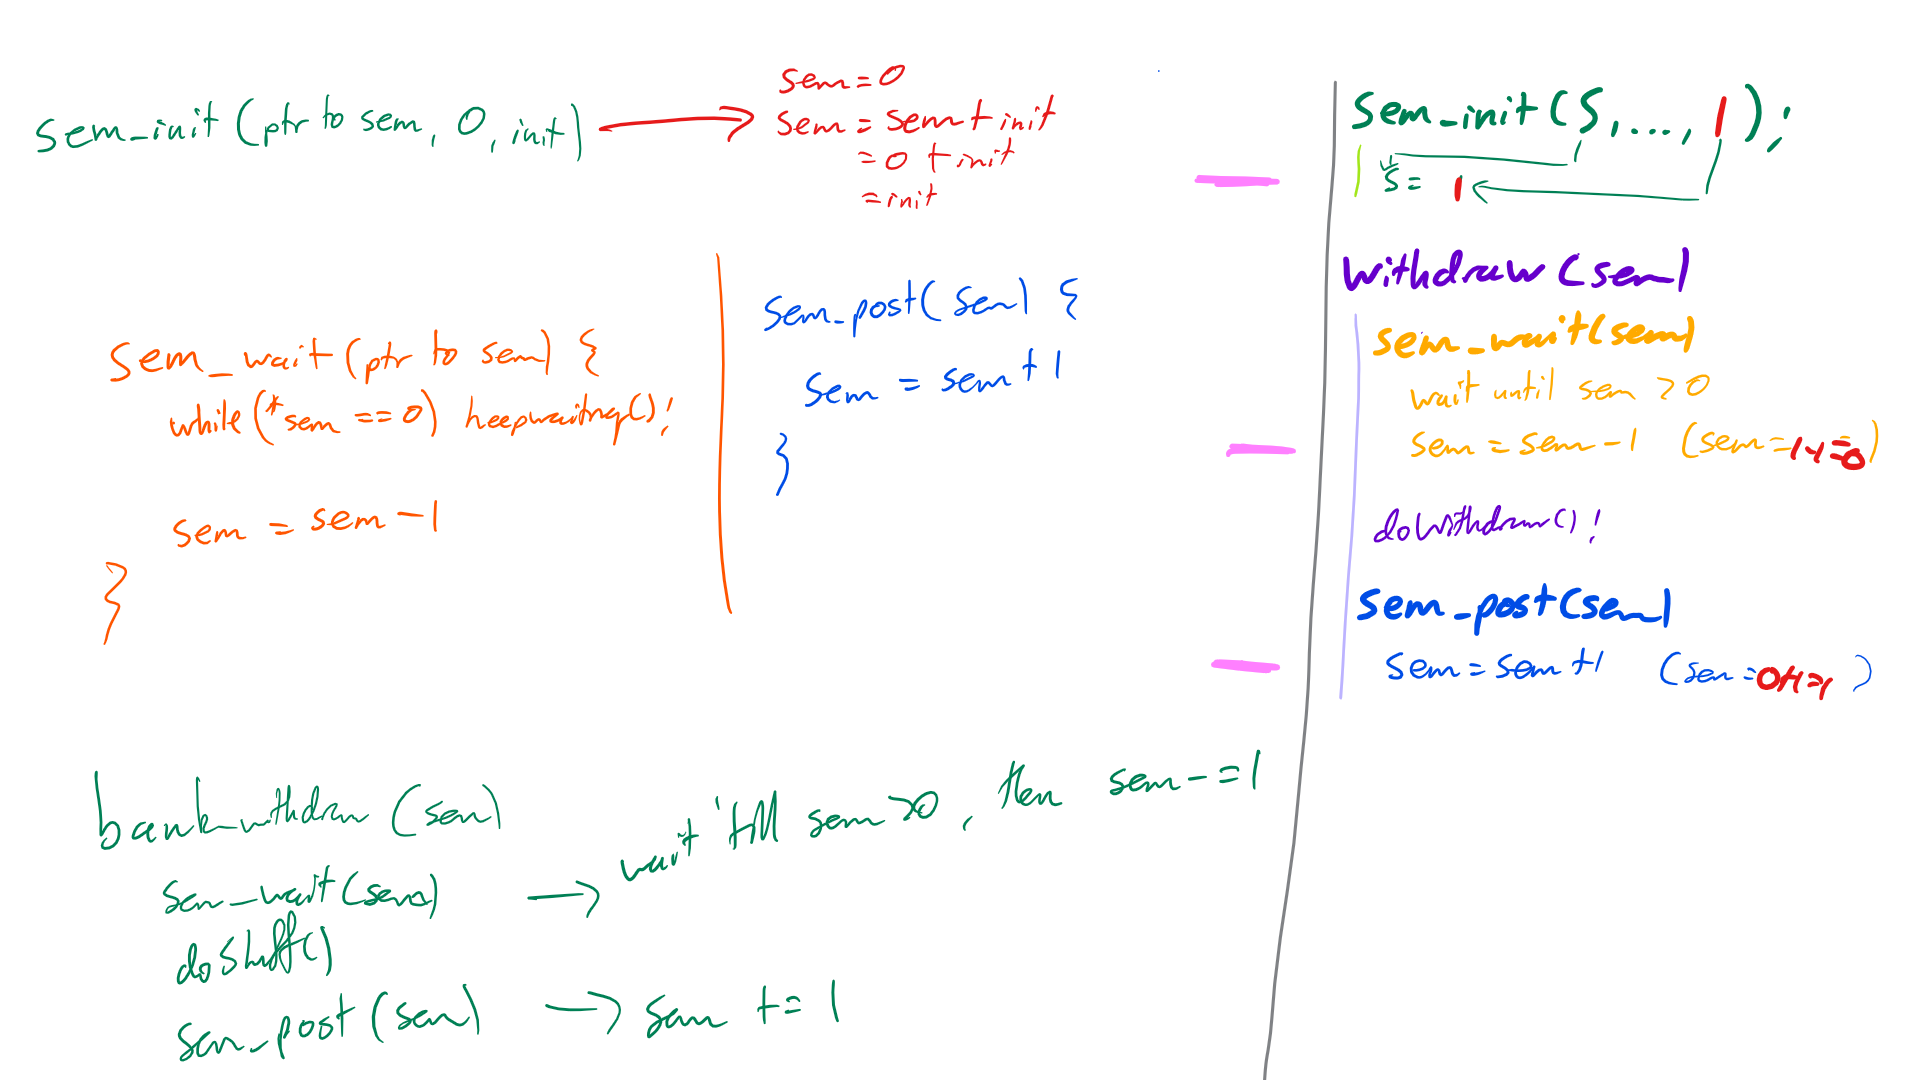 sem_init(ptr to sem, 0, init)
sem = 0
sem = sem + init
= 0 + init
= init
sem_wait(ptr to sem) {
while(*sem == 0) keepwaiting();
sem = sem - 1
}
sem_post(sem) {
sem = sem + 1
}
bank_withdraw(sem)
sem_wait(sem) → wait 'till sem > 0, then sem -= 1
doStuff()
sem_post(sem) → sem += 1
sem_init(S, ..., 1);
S = 1
withdraw(sem)
sem_wait(sem)
wait until sem > 0
sem = sem - 1 (sem = 1-1=0)
doWithdraw();
sem_post(sem)
sem = sem + 1 (sem = 0+1=1)